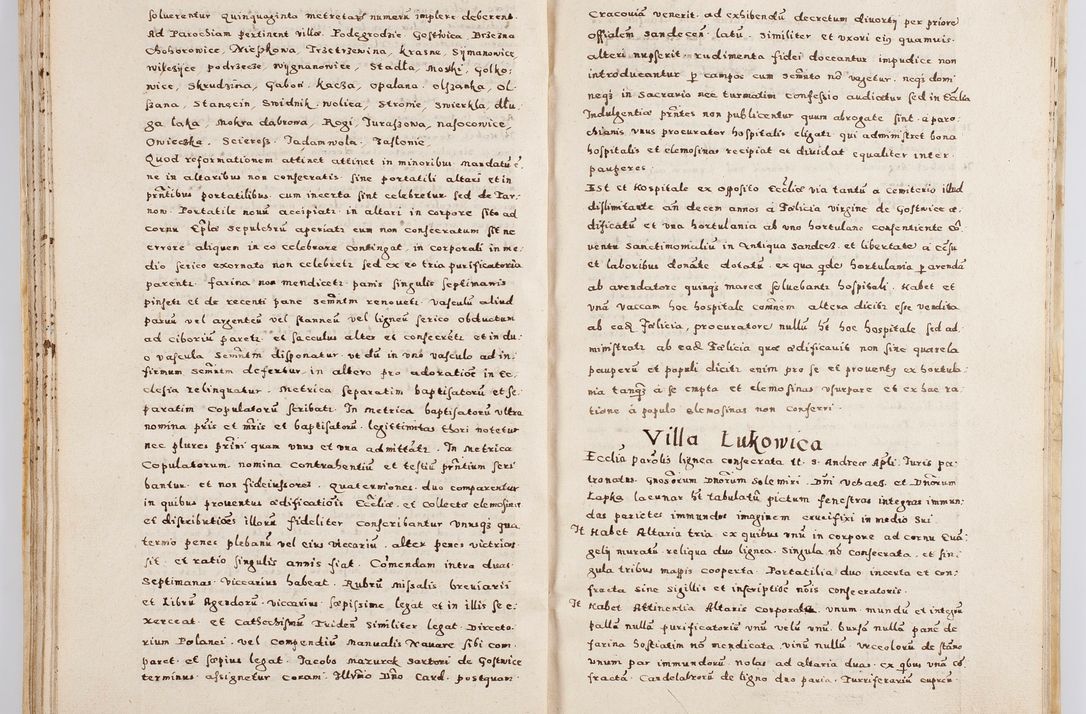 soluerentur quinquaginta metretarũ numerũ implere deberent.
Ad Parochiam pertinent villæ. Podegrodzie. Gostvica Brzezna
Chochorowice, Nieskowa, Trzetrzewina, krasne, Symanowice
wikczyce podrzecze, wygnanowice, Stadła, Moski, Golko,
wice, Skrudzina, Gabon, kacza, opalana. olszanka, ol
szana, Stangcin, Swidnik. wolica, Stronie, Swierkla, dłu
ga laka, Mokra dabrowa, Rogi, Juraszowa, nasocowice,
Owieczka, Scieresz, Jadamwola, Jastonie.
Quod reformationem attinet attinet in minoribus. Mandatũ ẽ
ne in altaribus non consecratis. sine portatili altari et in
prñtibus portatilibus. cum incerta sint celebretur sed de Par,
nom. Portatile nouũ accipiatr. in altari in corpore sito ad
cornu Eplæ Sepulchrũ aperiatr cum non consecratum sit ne
errore aliquem in eo celebrare contingat, in corporali in me,
dio serico exornato non celebretr sed ex eo tria purificatoria
parentr. farina non mendicetr. panis singulis septimanis
pinsetr et de recenti pane Semñtm renouetr. Vasculũ aliud
parũũ vel argenteũ vel stanneũ vel ligneũ serico obductum
ad ciboriũ paretr. et sacculus alter et consecretr et in du,
o vascula Semñtm disponatur. ut dũ in vnõ vasculo ad in,
firmum Semñtm defertur, in altero pro adoratiõe in Ec,
clesia relinquatur. Metrica separatim baptisatorũ et se,
paratim copulatorũ scribatr. In metrica baptisatorũ vltra
nomina pris et mris et baptisatorũ. legittimitas thori notetur
nec plures prim quam vnus et vna admittatr. In Metrica
Copulatorum. nomina contrahentiũ et testiũ prñtium scri
bantur. et non fideiussores. Quaterniones. duo comparentur
in quibus prouentus ædificatiõis Ecclæ. et Collecta elemosinæ
et distributiões illorũ fideliter conscribantur Vnusqz qua
ternio penes plebanũ vel eius viccariũ. alter penes victricos
sit. et ratio singulis annis fiat. Cõmendam intra duas
Septimanas. Viccarius habeat. Rubrũ missalis breviarii
et Librũ Agendorũ. viccarius. sæpissime legat et in illis se e,
xerceat. et Cathechismũ Tridẽñ similiter legat. Directo,
rium Polanci. vel compendiũ manualis Nauare sibi com,
paret. et sæpius legat. Jacobo mazurek sartori de Gostwice
terminus. assignetur coram. Illvmo Dño Card. postquam.
Cracouia venerit. ad exhibendũ decretum diuortij per priore
offialem Sandeceñ. latũ. Similiter et vxori eius quamuis.
alteri nupserit. rudimenta fidei doceantur. impudice non
introducantur p campos cum Semñto nõ vagetur. neqz domi
neqz in Sacrario nec turmatim confessio audiatur sed in Ecclia
Indulgentiæ prñtes non publicentur quum abrogate sint. a paro,
chianis vnus procurator hospitalis eligatr. qui administret bona
hospitalis et elemosinas recipiat et diuidat equaliter inter.
pauperes.
Est et Hospitale ex opposito Ecclæ via tantũ a cemiterio illud
dislimitante añ decem annos à Fœlicia virgine de Gostwice æ,
dificatũ et vna hortulania ab vno hortulano consentiente Cõ,
uentu Sanctimonialiũ in Antiqua Sandecz. et libertate à Cẽsu
et laboribus donate dotatũ. ex qua qde hortulania p arendã
ab arendatore quinqz marcæ soluebantr hospitali. Habet et
vnã vaccam hoc hospitale comñem. altera dicitr esse vendita
ab eadẽ Fœlicia, procuratorẽ nullũ ht hoc hospitale sed ad
ministratr ab eadẽ Fœlicia quæ ædificauit non sine quærela
pauperũ et populi dicitr enim pro se et prouentus ex hortula,
nia tanqz à se empta et elemosinas vsurpare et ex hac ra,
tione à populo elemosinas non conferri.
Villa Lukowica
Ecclia parolis lignea consecrata tt. s. Andreæ Apli. Juris pa,
tronatus. Gnosorum Dñorum Solemiri. Dñi vchacs. et Dñorum
Lapka lacunar ht tabulatũ pictum fenestras integras immun,
das parietes immundos imaginem crucifixi in medio sui.
It Habet Altaria tria. ex quibus vnũ in corpore ad cornu Euã,
gelij muratũ reliqua duo lignea. Singula nõ consecrata. et sin,
gula tribus mappis cooperta. Portatilia duo incerta et con,
fracta sine sigillis et inscriptiõe nõis consecratoris.
It Habet Attinentia Altaris Corporalia. vnum mundũ et integrũ
pallã nullã. purificatoriũ vnũ velũ vnũ. bursã nullã. panẽ de
farina hostiatim nõ mendicata. vinũ nullũ. vrceolorũ de stãno
vnum par immundorũ. nolas ad altaria duas. ex qbus vnã cõ,
fractã. Candelabrorũ de ligno duo paria. Turriferariũ cupreũ.